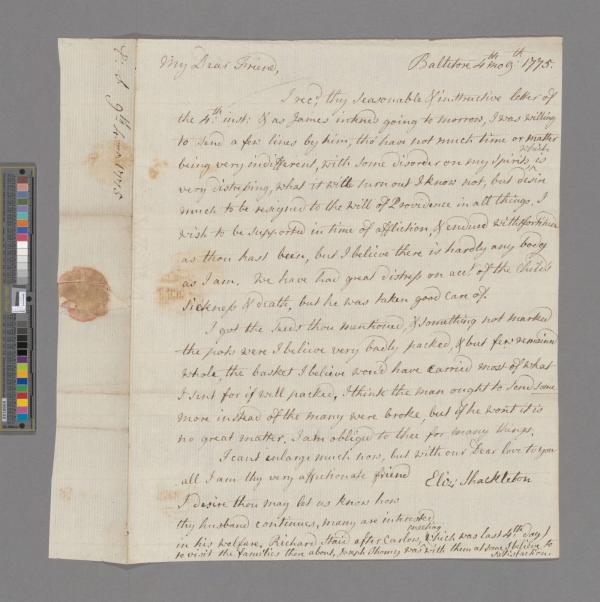 E. S. 9th 4 mo 1775
My Dear Friend,
Balitore 4th mo 9th 1775.
I recd thy seasonable & instructive letter of
the 4th inst: & as James intends going to morrow, I was willing
to send a few lines by him, tho' have not much time or matter
being very indifferent, with some disorder on my spirits which is
very distressing, what it will turn out I know not, but desire
much to be resigned to the will of Providence in all things, I
wish to be supported in time of affliction, & endued with patience
as thou hast been, but I believe there is hardly any body
as I am. We have had great distress on acct of the child's
sickness & death, but he was taken good care of.
I got the seeds thou mentioned, & something not marked
the pots were I believe very badly packed, & but few remaind
whole, the basket I believe would have carried most of what
I sent for if well packed, I think the man ought to send some
more instead of the many were broke, but if he wont it is
no great matter, I am obliged to thee for many things.
I cant enlarge much now, but with our Dear love to you
all I am thy very affectionate friend
Eliz: Shackleton
I desire thou may let us know how
thy husband continues, many are interested
in his welfare. Richard staid after Carlow meeting, which was last 4th day,
to visit the families there about, Joseph was with them at some I believe to
satisfaction.